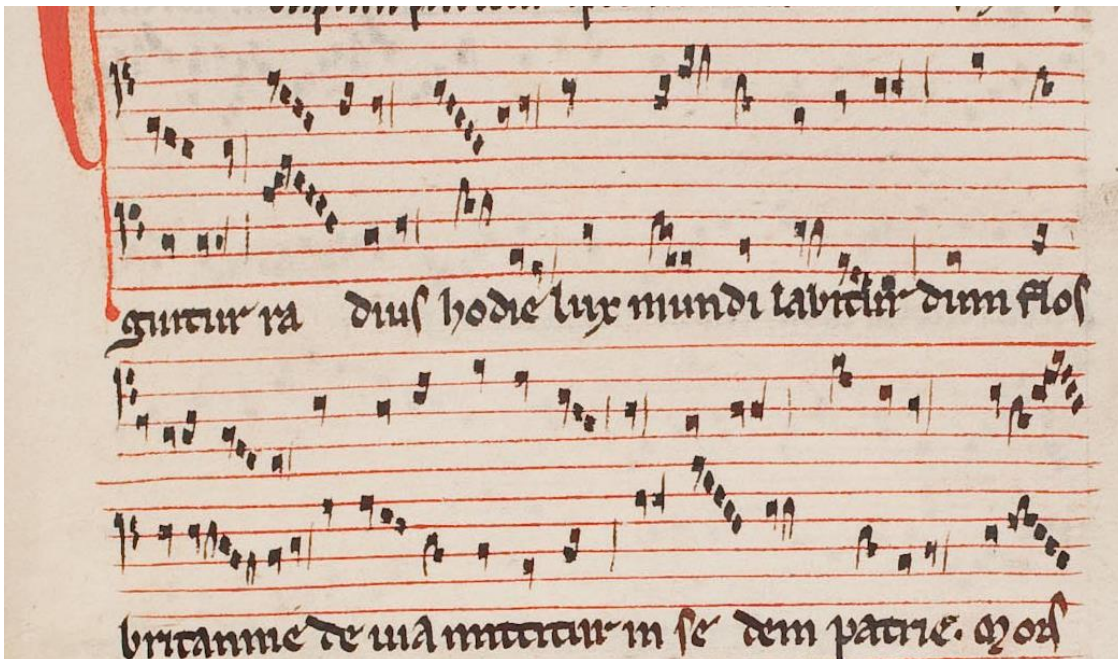 guitur ra dius hodie lux mundi labitur dum flos
britannie de uia mittitur in se dem patrie. Mors